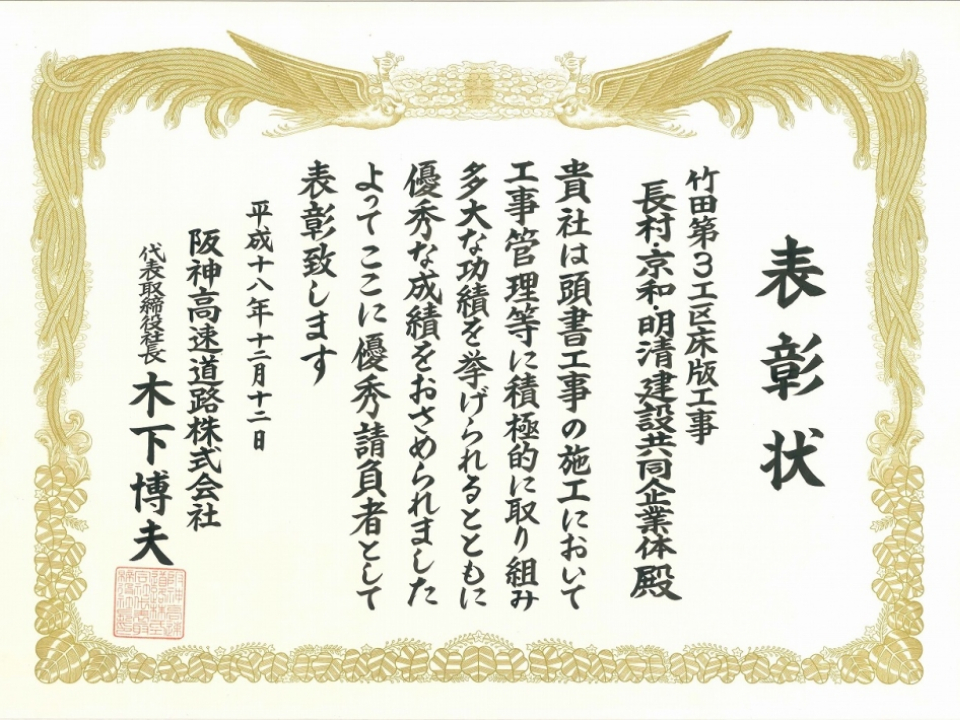 表彰状
竹田第3工区床版工事
長村・京和・明清建設共同企業体殿
貴社は頭書工事の施工において
工事管理等に積極的に取り組み
多大な功績を挙げられるとともに
優秀な成績をおさめられました
よってここに優秀請負者として
表彰致します
平成十八年十二月十二日
阪神高速道路株式会社
代表取締役社長 木下博夫